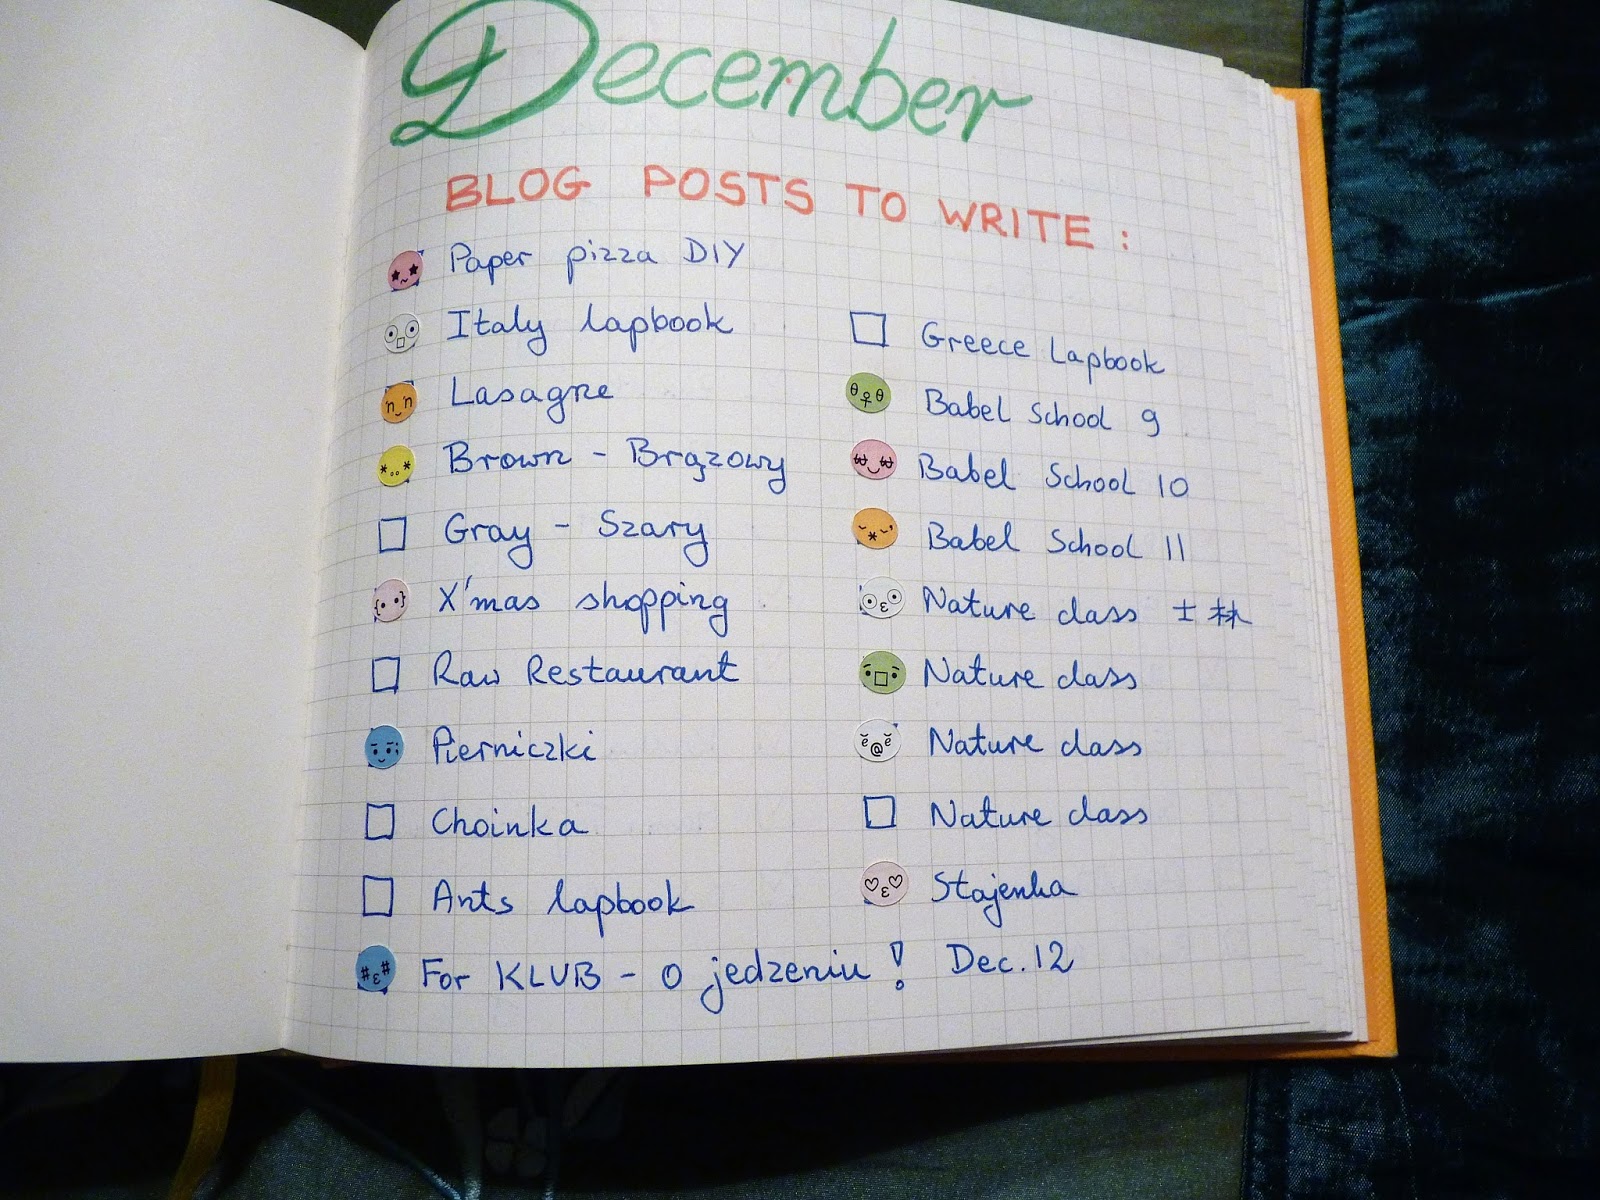 December
BLOG POSTS TO WRITE:
Paper pizza DIY
Italy lapbook
Lasagne
Brown - Brązowy
Gray - Szary
X'mas shopping
Raw Restaurant
Pierniczki
Choinka
Ants lapbook
For KLUB - o jedzeniu! Dec. 12
Greece Lapbook
Babel School 9
Babel School 10
Babel School 11
Nature class 士林
Nature class
Nature class
Nature class
Stajenka